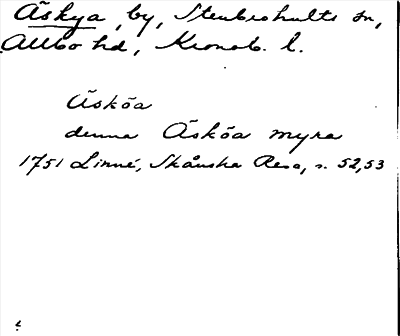 Äskya, by, Stenbrohults sn,
Allbo hd, Kronob. l.
Äsköa
denna Äsköa myra
1751 Linné, Skånska Resa, s. 52,53